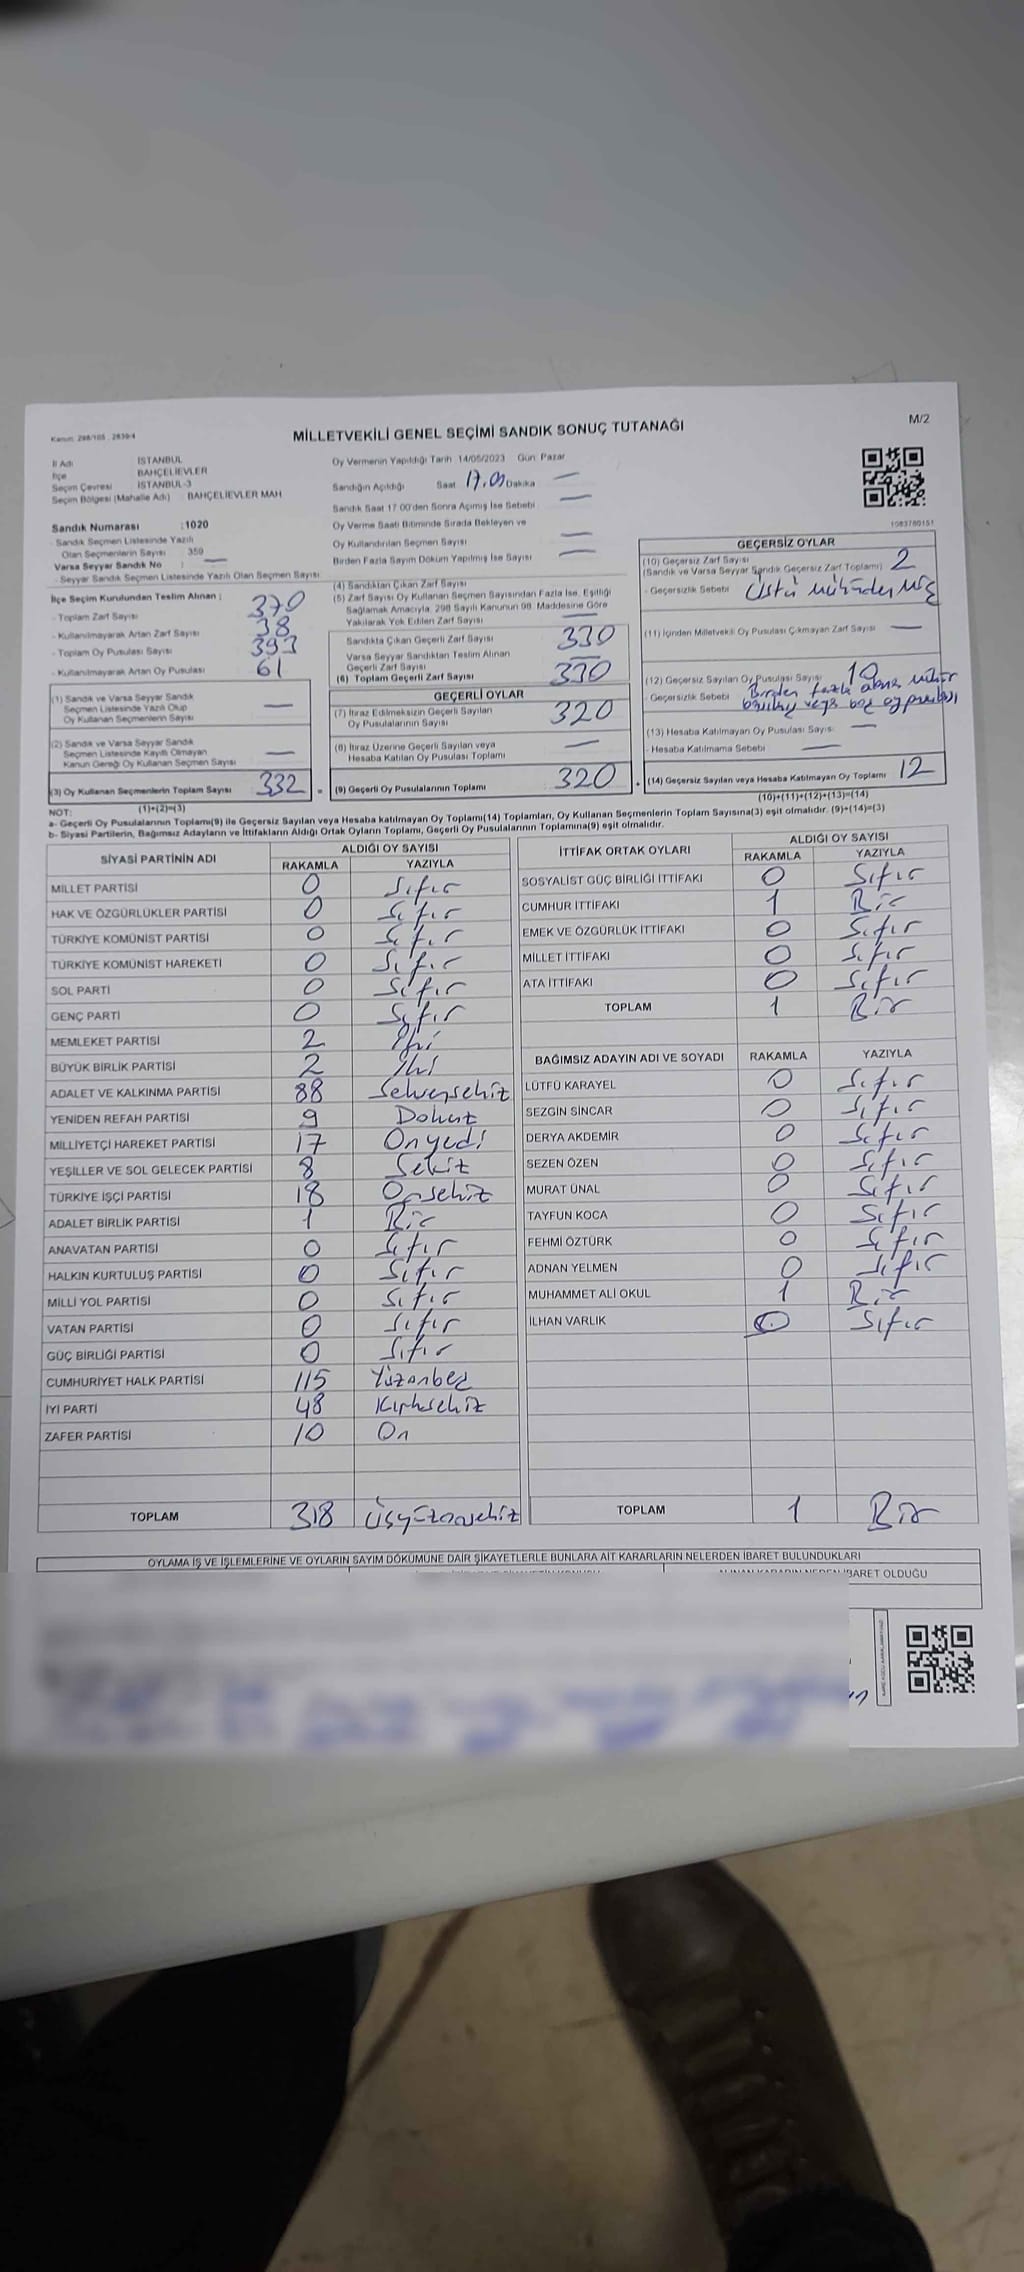 Kanun: 298/105 , 2839/4
MİLLETVEKİLİ GENEL SEÇİMİ SANDIK SONUÇ TUTANAĞI
M/2
İl Adı : İSTANBUL
İlçe : BAHÇELİEVLER
Seçim Çevresi : İSTANBUL-3
Seçim Bölgesi (Mahalle Adı) : BAHÇELİEVLER MAH
Sandık Numarası :1020
- Sandık Seçmen Listesinde Yazılı
Olan Seçmenlerin Sayısı : 359
Varsa Seyyar Sandık No : —
- Seyyar Sandık Seçmen Listesinde Yazılı Olan Seçmen Sayısı:
İlçe Seçim Kurulundan Teslim Alınan :
- Toplam Zarf Sayısı 370
- Kullanılmayarak Artan Zarf Sayısı 38
- Toplam Oy Pusulası Sayısı 393
- Kullanılmayarak Artan Oy Pusulası 61
(1) Sandık ve Varsa Seyyar Sandık
Seçmen Listesinde Yazılı Olup
Oy Kullanan Seçmenlerin Sayısı —
(2) Sandık ve Varsa Seyyar Sandık
Seçmen Listesinde Kayıtlı Olmayan
Kanun Gereği Oy Kullanan Seçmen Sayısı —
(3) Oy Kullanan Seçmenlerin Toplam Sayısı 332
(1)+(2)=(3)
Oy Vermenin Yapıldığı Tarih 14/05/2023 Gün: Pazar
Sandığın Açıldığı Saat 17.01 Dakika —
Sandık Saat 17:00'den Sonra Açılmış İse Sebebi —
Oy Verme Saati Bitiminde Sırada Bekleyen ve
Oy Kullandırılan Seçmen Sayısı —
Birden Fazla Sayım Döküm Yapılmış İse Sayısı —
(4) Sandıktan Çıkan Zarf Sayısı
(5) Zarf Sayısı Oy Kullanan Seçmen Sayısından Fazla İse, Eşitliği
Sağlamak Amacıyla, 298 Sayılı Kanunun 98. Maddesine Göre
Yakılarak Yok Edilen Zarf Sayısı —
Sandıkta Çıkan Geçerli Zarf Sayısı 330
Varsa Seyyar Sandıktan Teslim Alınan
Geçerli Zarf Sayısı —
(6) Toplam Geçerli Zarf Sayısı 330
GEÇERLİ OYLAR
(7) İtiraz Edilmeksizin Geçerli Sayılan
Oy Pusulalarının Sayısı 320
(8) İtiraz Üzerine Geçerli Sayılan veya
Hesaba Katılan Oy Pusulası Toplamı —
(9) Geçerli Oy Pusulalarının Toplamı 320
1083760151
GEÇERSİZ OYLAR
(10) Geçersiz Zarf Sayısı
(Sandık ve Varsa Seyyar Sandık Geçersiz Zarf Toplamı) 2
- Geçersizlik Sebebi Üstü mühürlenmiş
(11) İçinden Milletvekili Oy Pusulası Çıkmayan Zarf Sayısı —
(12) Geçersiz Sayılan Oy Pusulası Sayısı 10
- Geçersizlik Sebebi Birden fazla alana mühür
veya boş oy pusulası
(13) Hesaba Katılmayan Oy Pusulası Sayısı —
- Hesaba Katılmama Sebebi —
(14) Geçersiz Sayılan veya Hesaba Katılmayan Oy Toplamı 12
(10)+(11)+(12)+(13)=(14)
NOT:
a- Geçerli Oy Pusulalarının Toplamı(9) ile Geçersiz Sayılan veya Hesaba katılmayan Oy Toplamı(14) Toplamları, Oy Kullanan Seçmenlerin Toplam Sayısına(3) eşit olmalıdır. (9)+(14)=(3)
b- Siyasi Partilerin, Bağımsız Adayların ve İttifakların Aldığı Ortak Oyların Toplamı, Geçerli Oy Pusulalarının Toplamına(9) eşit olmalıdır.
SİYASİ PARTİNİN ADI
ALDIĞI OY SAYISI
RAKAMLA YAZIYLA
MİLLET PARTİSİ 0 Sıfır
HAK VE ÖZGÜRLÜKLER PARTİSİ 0 Sıfır
TÜRKİYE KOMÜNİST PARTİSİ 0 Sıfır
TÜRKİYE KOMÜNİST HAREKETİ 0 Sıfır
SOL PARTİ 0 Sıfır
GENÇ PARTİ 0 Sıfır
MEMLEKET PARTİSİ 2 İki
BÜYÜK BİRLİK PARTİSİ 2 İki
ADALET VE KALKINMA PARTİSİ 88 Seksensekiz
YENİDEN REFAH PARTİSİ 9 Dokuz
MİLLİYETÇİ HAREKET PARTİSİ 17 Onyedi
YEŞİLLER VE SOL GELECEK PARTİSİ 8 Sekiz
TÜRKİYE İŞÇİ PARTİSİ 18 Onsekiz
ADALET BİRLİK PARTİSİ 1 Bir
ANAVATAN PARTİSİ 0 Sıfır
HALKIN KURTULUŞ PARTİSİ 0 Sıfır
MİLLİ YOL PARTİSİ 0 Sıfır
VATAN PARTİSİ 0 Sıfır
GÜÇ BİRLİĞİ PARTİSİ 0 Sıfır
CUMHURİYET HALK PARTİSİ 115 Yüzonbeş
İYİ PARTİ 48 Kırksekiz
ZAFER PARTİSİ 10 On
TOPLAM 318 Üçyüzonsekiz
İTTİFAK ORTAK OYLARI
ALDIĞI OY SAYISI
RAKAMLA YAZIYLA
SOSYALİST GÜÇ BİRLİĞİ İTTİFAKI 0 Sıfır
CUMHUR İTTİFAKI 1 Bir
EMEK VE ÖZGÜRLÜK İTTİFAKI 0 Sıfır
MİLLET İTTİFAKI 0 Sıfır
ATA İTTİFAKI 0 Sıfır
TOPLAM 1 Bir
BAĞIMSIZ ADAYIN ADI VE SOYADI RAKAMLA YAZIYLA
LÜTFÜ KARAYEL 0 Sıfır
SEZGİN SİNCAR 0 Sıfır
DERYA AKDEMİR 0 Sıfır
SEZEN ÖZEN 0 Sıfır
MURAT ÜNAL 0 Sıfır
TAYFUN KOCA 0 Sıfır
FEHMİ ÖZTÜRK 0 Sıfır
ADNAN YELMEN 0 Sıfır
MUHAMMET ALİ OKUL 1 Bir
İLHAN VARLIK 0 Sıfır
TOPLAM 1 Bir
OYLAMA İŞ VE İŞLEMLERİNE VE OYLARIN SAYIM DÖKÜMÜNE DAİR ŞİKAYETLERLE BUNLARA AİT KARARLARIN NELERDEN İBARET BULUNDUKLARI
İBARET OLDUĞU